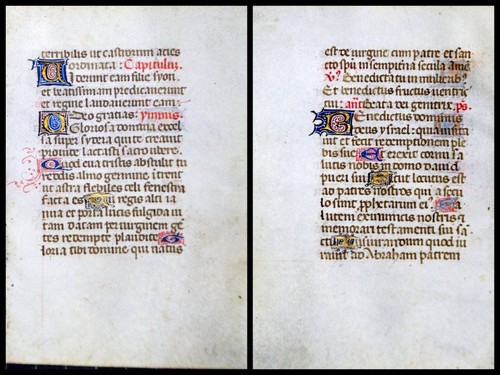 terribilis ut castrorum acies
ordinata: Capitulum.
Viderunt eam filie syon.
et beatissimam predicauerunt
et regine laudauerunt eam:
Deo gratias: ymnus.
O Gloriosa domina excel
sa super sydera qui te creauit
prouide lactasti sacro ubere.
Quod eua tristis abstulit tu
reddis almo germine: itrent
ut astra flebiles celi fenestra
facta es Tu regis alti ia
nua et porta lucis fulgida ui
tam datam per uirginem
gentes redempte plaudite G
loria tibi domine qui natus
est de uirgine cum patre et san
cto spu in sempiterna secula amen
V? Benedicta tu in mulieribus?
Et benedictus fructus uentris
tui: añ Beata dei genitrix. ps.
Benedictus dominus
deus ysrael: quia
et fecit redemptionem ple
bis sue Et erexit cornu sa
lutis nobis in domo dauid
pueri sui Sicut locutus est
ad patres nostros qui a secu
lo sunt prophetarum ei? Sa
lutem ex inimicis nostris
memorari testamenti sui sa
cti Iusiurandum quod iu
rauit ad Abraham patrem